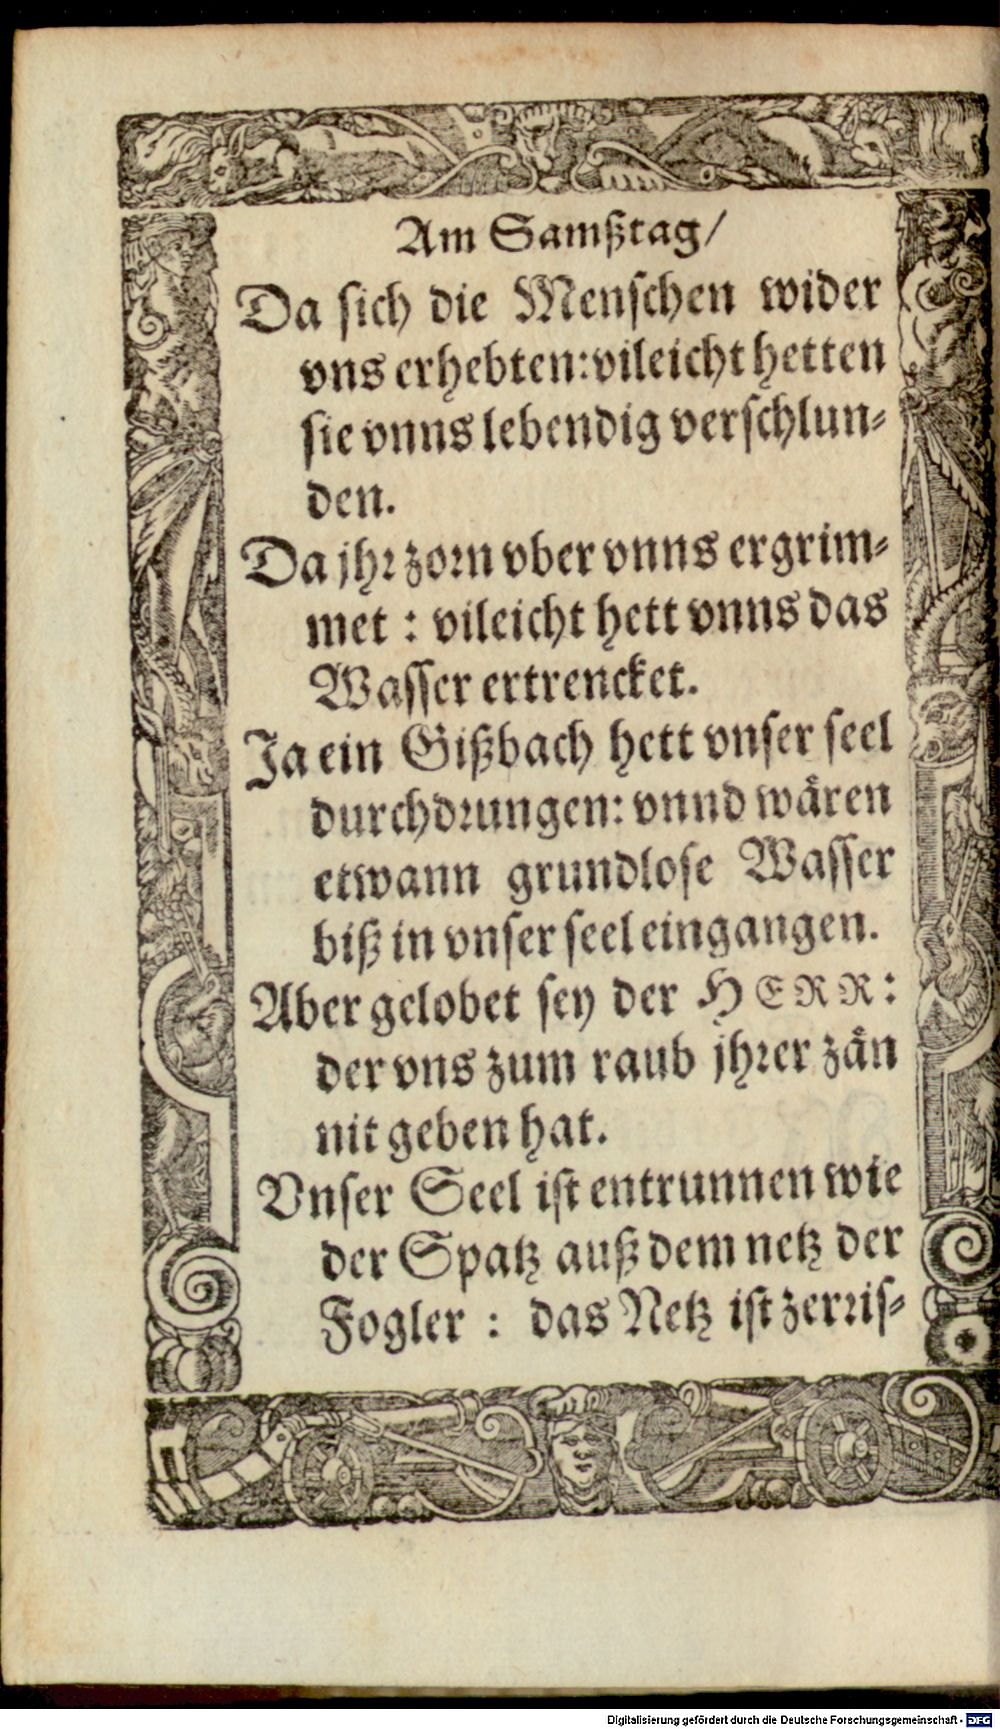 Am Samßtag/
Da sich die Menschen wider
vns erhebten: vileicht hetten
sie vnns lebendig verschlun-
den.
Da jhr zorn vber vnns ergrim-
met : vileicht hett vnns das
Wasser ertrencket.
Ja ein Gißbach hett vnser seel
durchdrungen: vnnd wären
etwann grundlose Wasser
biß in vnser seel eingangen.
Aber gelobet sey der HERR:
der vns zum raub jhrer zän
nit geben hat.
Vnser Seel ist entrunnen wie
der Spatz auß dem netz der
Fogler : das Netz ist zerris-
Digitalisierung gefördert durch die Deutsche Forschungsgemeinschaft - DFG